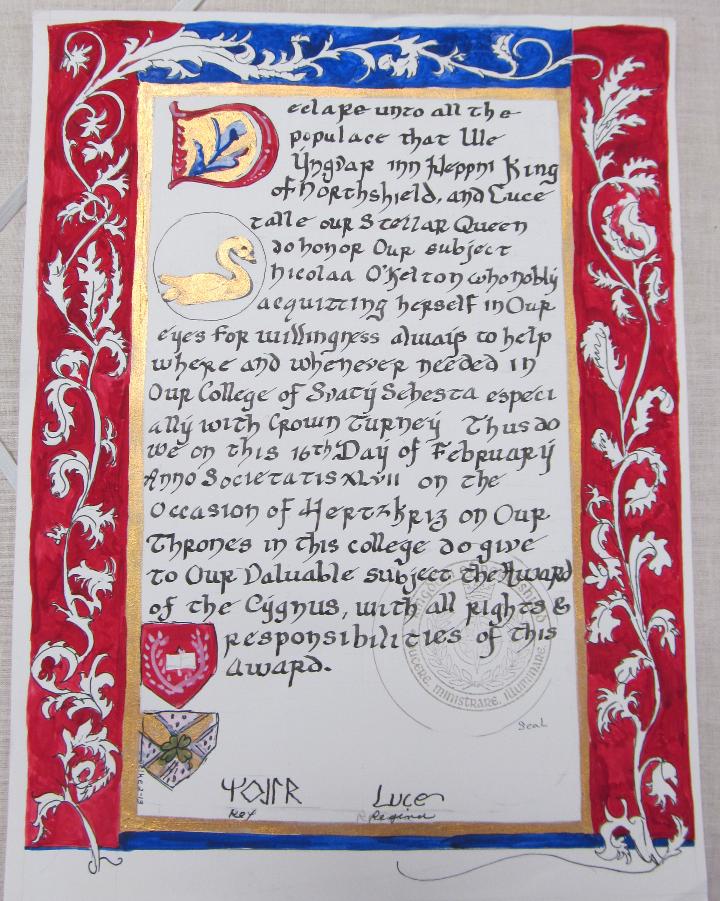 Declare unto all the
populace that We
Yngvar inn Heppni King
of Northshield, and Luce
talle our Stellar Queen
do honor Our subject
Nicolaa O'Kelton who nobly
acquitting herself in Our
eyes for willingness always to help
where and whenever needed in
Our College of Svaty Sebesta especi
ally with Crown Turney Thus do
we on this 16th Day of February
Anno Societatis XLVII on the
Occasion of Hertzkrig on Our
Thrones in this college do give
to Our Valuable subject the Award
of the Cygnus, with all rights &
responsibilities of this
award.
DUCERE, MINISTRARE, ILLUMINARE
Seal
Luce
Rex Regina